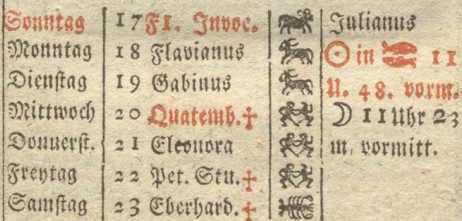 Sonntag 17 F1. Invoc. Julianus
Monntag 18 Flavianus ☉ in ♓ 11
Dienstag 19 Gabinus U. 48. vorm.
Mittwoch 20 Quatemb.† ☽ 11 Uhr 23
Donnerst. 21 Eleonora m. vormitt.
Freytag 22 Pet. Stu.†
Samstag 23 Eberhard.†